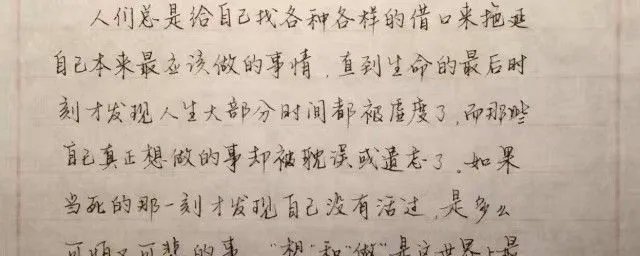 人们总是给自己找各种各样的借口来拖延
自己本来最应该做的事情，直到生命的最后时
刻才发现人生大部分时间都被虚度了，而那些
自己真正想做的事却被耽误或遗忘了。如果
当死的那一刻才发现自己没有活过，是多么
可 又可悲的事。“想”和“做”是这世界上最